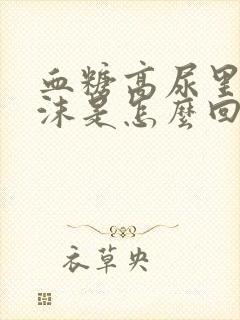 血糖高尿里
沫是怎麼回
衣草央